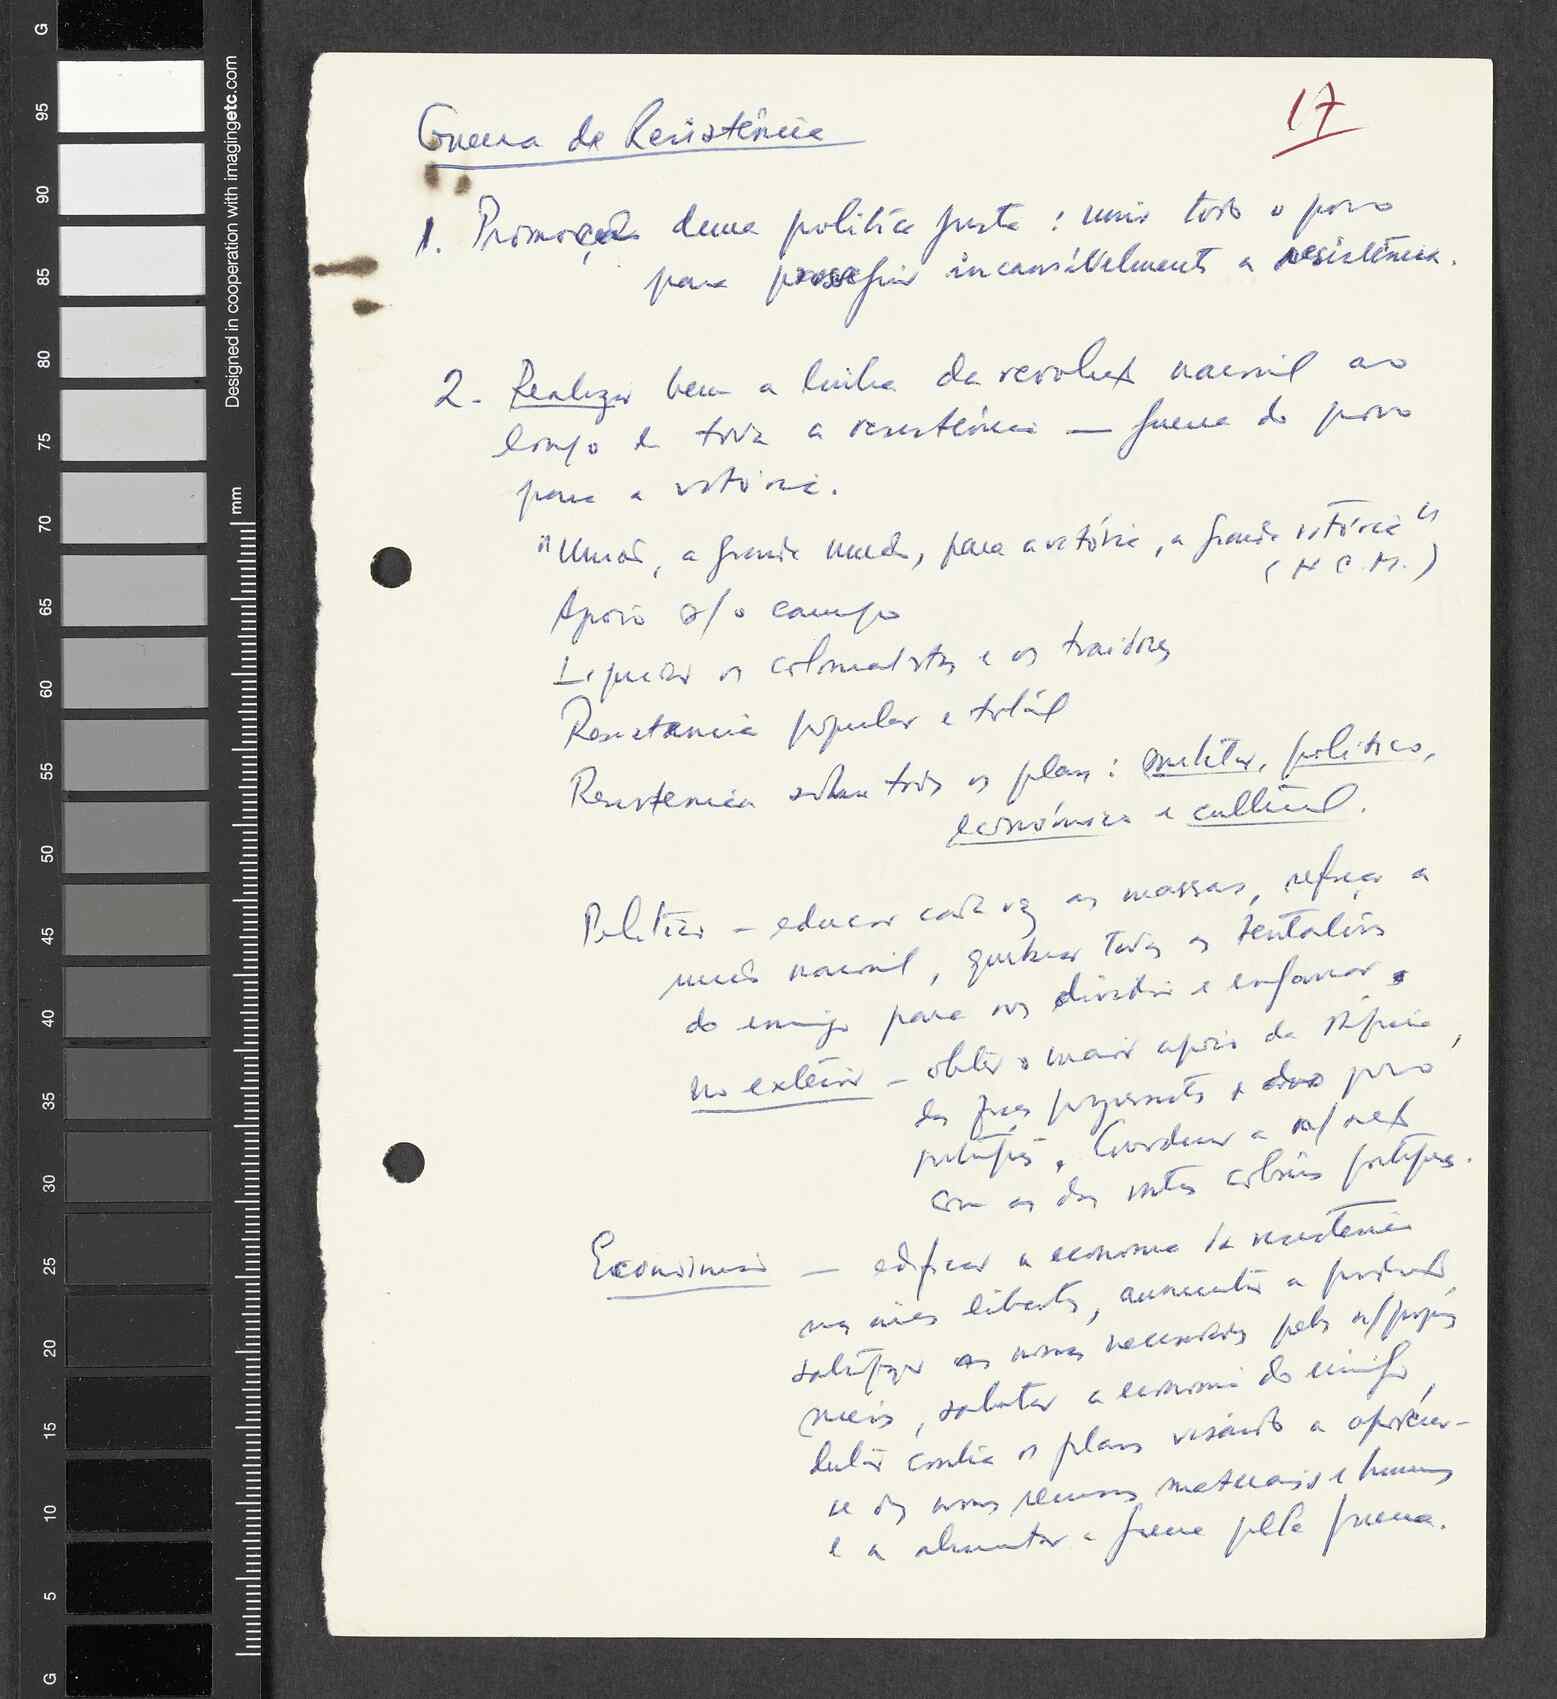 17
Guerra de Resistência
1. Promoção duma política justa : unir todo o povo
para prosseguir incansàvelmente a resistência.
2. Realizar bem a linha da revolução nacional ao
longo de toda a resistência — guerra do povo
para a vitória.
"União, a grande união, para a vitória, a grande vitória"
(H C. M.)
Apoio s/ o campo
Liquidar os colonialistas e os traidores
Resistencia popular e total
Resistencia sobre todos os planos : militar, político,
económico e cultural.
Político — educar cada vez as massas, reforçar a
união nacional, quebrar todas as tentativas
do inimigo para nos dividir e enganar,
no exterior — obter o maior apoio da África,
das forças progressistas e do povo
português. Coordenar a n/ acção
com as das outras colónias portuguesas.
Economico — edificar a economia de resistência
nas áreas libertadas, aumentar a produção,
satisfazer as nossas necessidades pelos n/ próprios
meios, sabotar a economia do inimigo,
lutar contra os planos visando a apoderar-
se dos nossos recursos materiais e humanos
e a alimentar a guerra pela guerra.
Designed in cooperation with imagingetc.com
mm
G
95
90
85
80
75
70
65
60
55
50
45
40
35
30
25
20
15
10
5
G